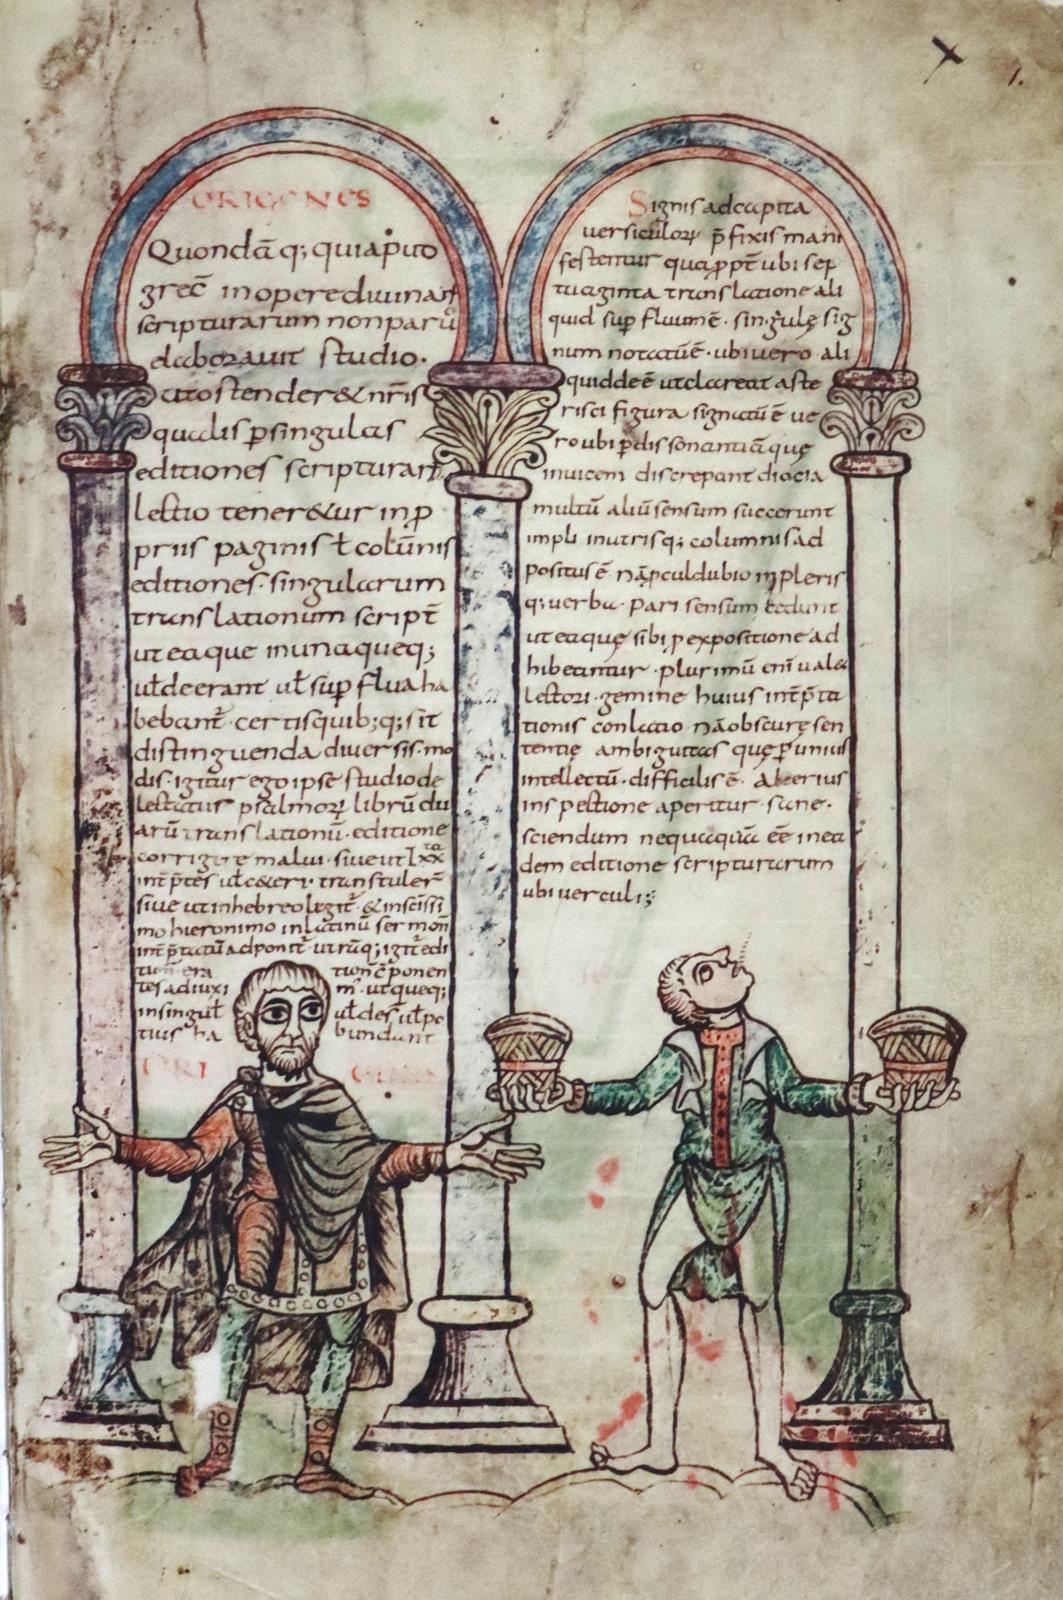 ORIGENES
Quondā q; quia puto
grec̄ in opere diuinar̄
scripturarum non parū
elaborauit studio.
ostender& nr̄is
qualis p singulas
editiones scripturar̄
lectio tener&ur in p
priis paginis ł colūnis
editiones · singularum
translationum script̄
ut eaque in unaqueq;
uł deerant uł sup flua ha
bebant̄ · certis quib; q; sit
distinguenda diuersis · mo
dis · igitur ego ipse studio de
lectatus psalmoꝝ librū du
arū translationū · editione
corrigere malui · siue ut Lxx^ta
int̄p̄tes uł c&eri · transtuler̄
siue ut in hebreo legit̄ · & inscissi
mo hieronimo in latinū sermon̄
int̄p̄tatū adponit̄ · utraq; igit̄ edi
tion̄ c̄ponen
tes adiuxi m̄ · ut queq;
in singuł uł des̄ uł po
tius ha bundant
ORI GENES
Signis ad capita
uersiculoꝝ p̄fixis mani
festentur qua ꝓpt̄ ubi sep
tuaginta translatione ali
quid sup fluum ē · singulę sig
num notatū ē · ubi uero · ali
quid deē ut clareat aste
risci figura signatū ē ue
ro ubi p dissonantiā quę
inuicem discrepant diocia
multū aliū sensum succerunt
impli in utrisq; columnis ad
positus ē nā ꝓculdubio in pleris
q; uerba · pari sensum cedunt
ut eaquę sibi ꝑ expositione ad
hibeantur · plurimū enī uale
lectori · gemine huius int̄p̄ta
tionis conlatio nā obscurę sen
tentię ambiguitas quę p unius
intellectū · difficilis ē · Alterius
inspectione aperitur · sane ·
sciendum nequaquā eē in ea
dem editione scripturarum
ubi uerculi;